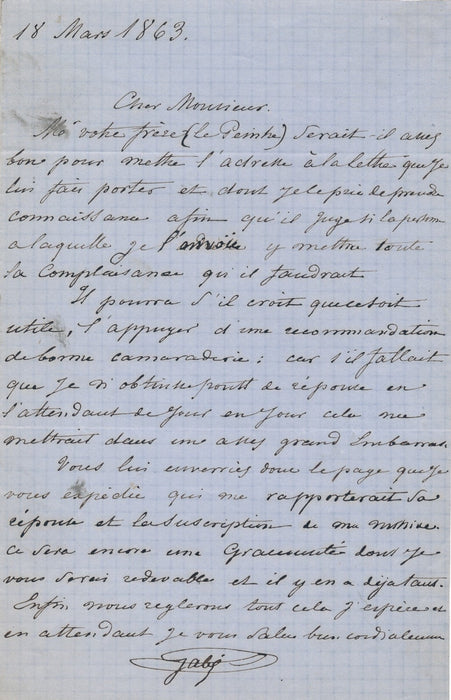 18 Mars 1863.
Cher Monsieur.
Mr votre frère (le Peintre) Serait-il assez
bon pour mettre l'adresse à la lettre que Je
lui fais porter et dont Je le prie de prendre
connaissance afin qu'il Juge si la personne
a laquelle je l'envoie y mettra toute
la Complaisance qu'il faudrait
Il pourra s'il croit que ce soit
utile, l'appuyer d'une recommandation
de bonne camaraderie: car s'il fallait
que Je n'obtinsse point de réponse en
l'attendant de Jour en Jour cela me
mettrait dans un assez grand Embarras.
Vous lui enverriez donc le page que Je
vous expédie qui me rapporterait sa
réponse et la suscription de ma missive.
ce sera encore une Gracieuseté dont Je
vous serai redevable et il y en a déja tant.
Enfin nous reglerons tout cela J'espère et
en attendant Je vous salue bien cordialement